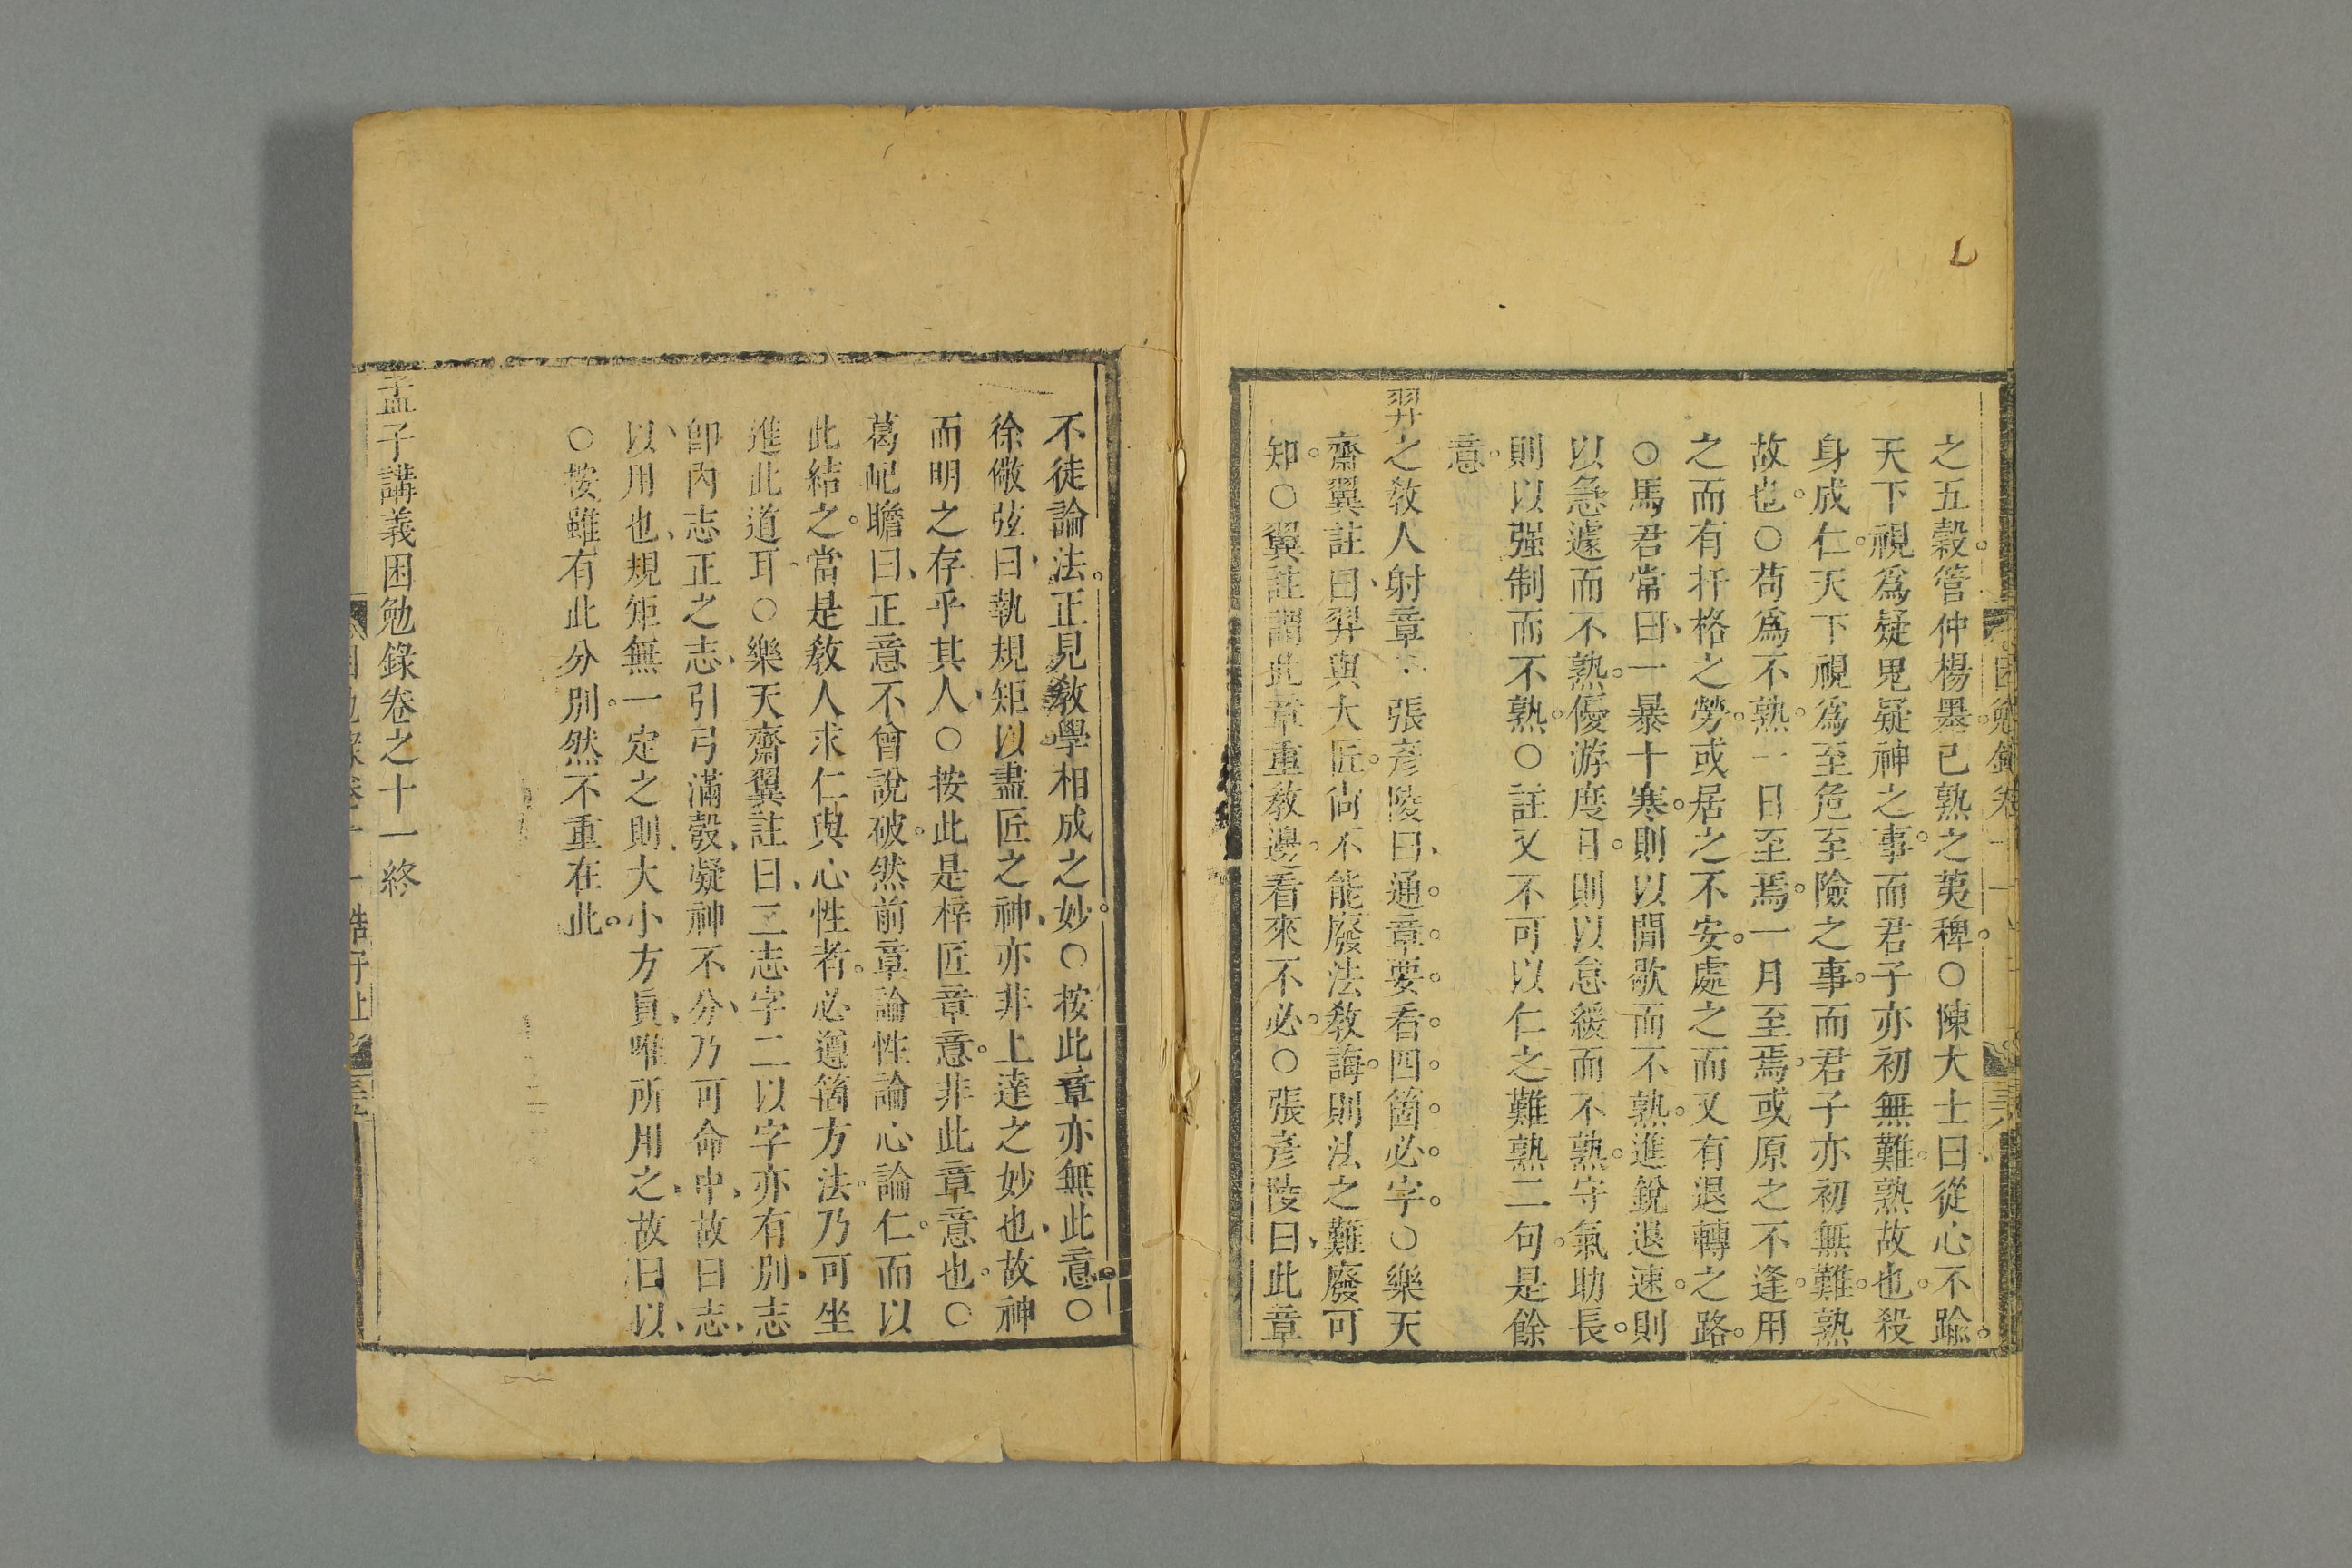 之五穀管仲楊墨已熟之荑稗○陳大士曰從心不踰
天下視爲疑鬼疑神之事而君子亦初無難熟故也殺
身成仁天下視爲至危至險之事而君子亦初無難熟
故也○苟爲不熟一日至焉一月至焉或原之不逢用
之而有扞格之勞或居之不安處之而又有退轉之路
○馬君常曰一暴十寒則以閒歇而不熟進銳退速則
以急遽而不熟優游度日則以怠緩而不熟守氣助長
則以强制而不熟○註又不可以仁之難熟二句是餘
意
羿之敎人射章 張彥陵曰通章要看四箇必字○樂天
齋翼註曰羿與大匠尙不能廢法敎誨則法之難廢可
知○翼註謂此章重敎邊看來不必○張彥陵曰此章
不徒論法正見敎學相成之妙○按此章亦無此意○
徐儆弦曰執規矩以盡匠之神亦非上達之妙也故神
而明之存乎其人○按此是梓匠章意非此章意也○
葛屺瞻曰正意不曾說破然前章論性論心論仁而以
此結之當是敎人求仁與心性者必遵箇方法乃可坐
進此道耳○樂天齋翼註曰二志字二以字亦有別志
卽內志正之志引弓滿彀凝神不分乃可命中故曰志
以用也規矩無一定之則大小方員唯所用之故曰以
○按雖有此分別然不重在此
孟子講義困勉錄卷之十一終